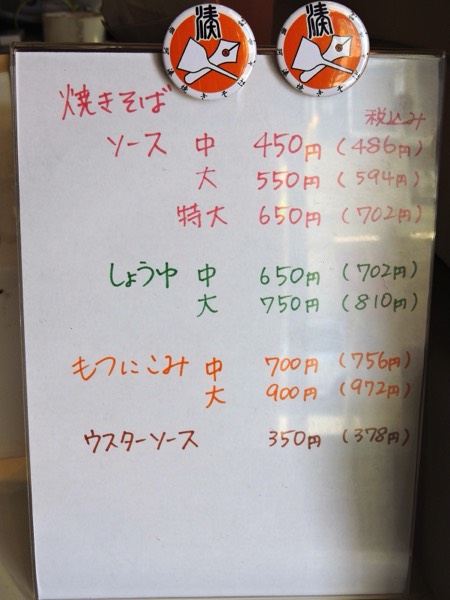 焼きそば
税込み
ソース 中 450円 (486円)
大 550円 (594円)
特大 650円 (702円)
しょうゆ 中 650円 (702円)
大 750円 (810円)
もつにこみ 中 700円 (756円)
大 900円 (972円)
ウスターソース 350円 (378円)